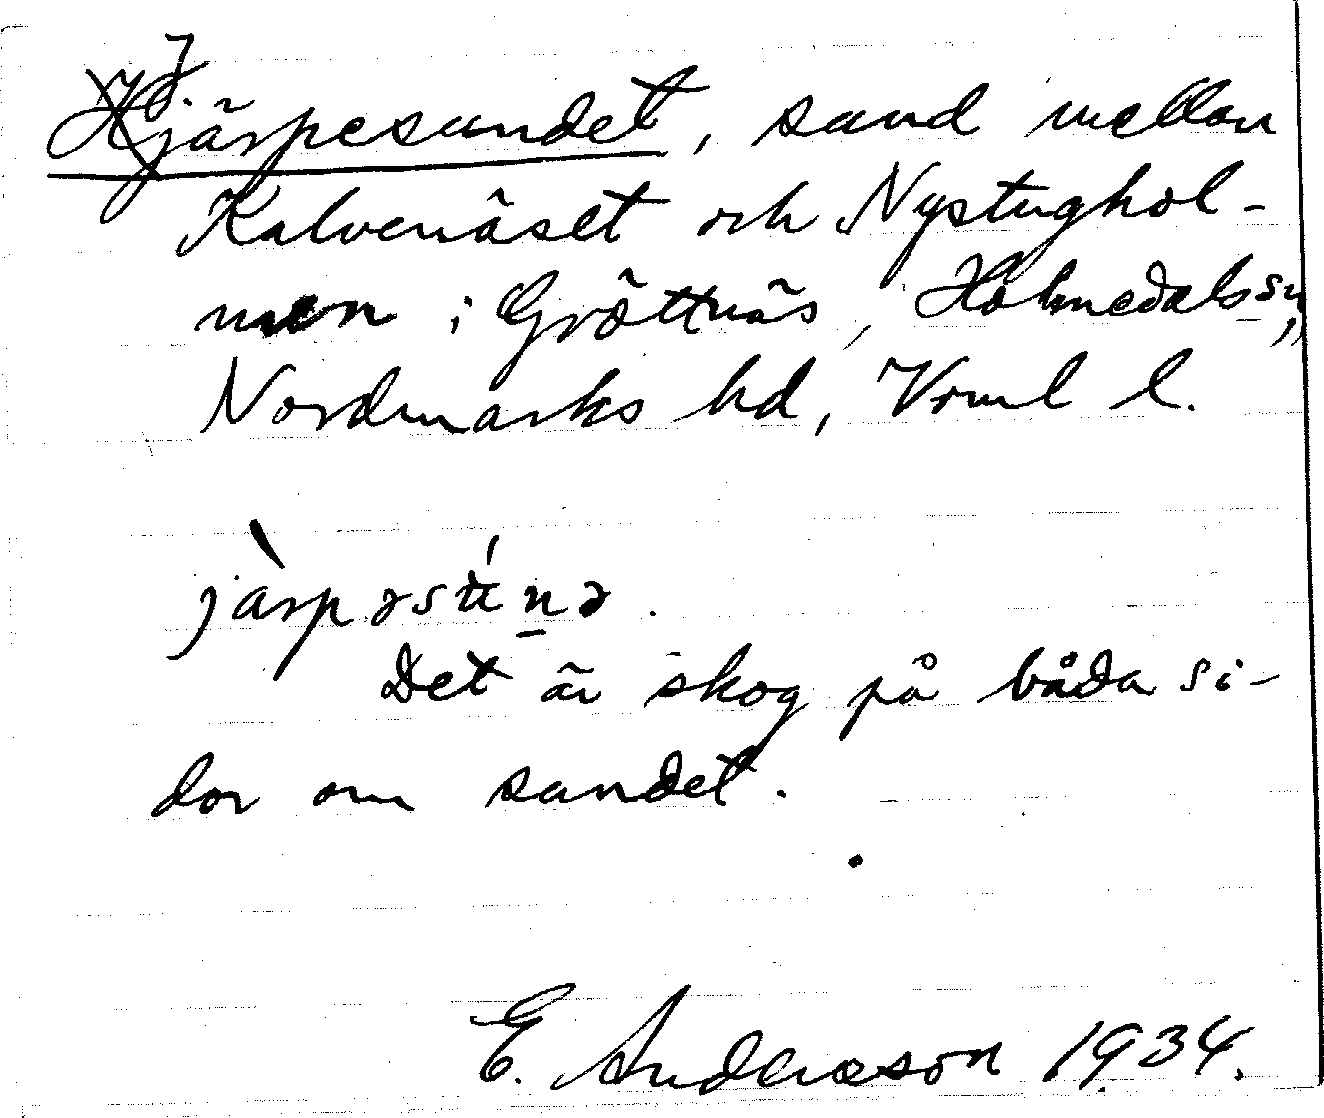 Järpesundet, sund mellan
Kalvenäset och Nystughol-
men i Gröttnäs, Holmedals sn,
Nordmarks hd, Vrml l.
jàrpəsún̲ə.
Det är skog på båda si-
dor om sundet.
E. Andersson 1934.